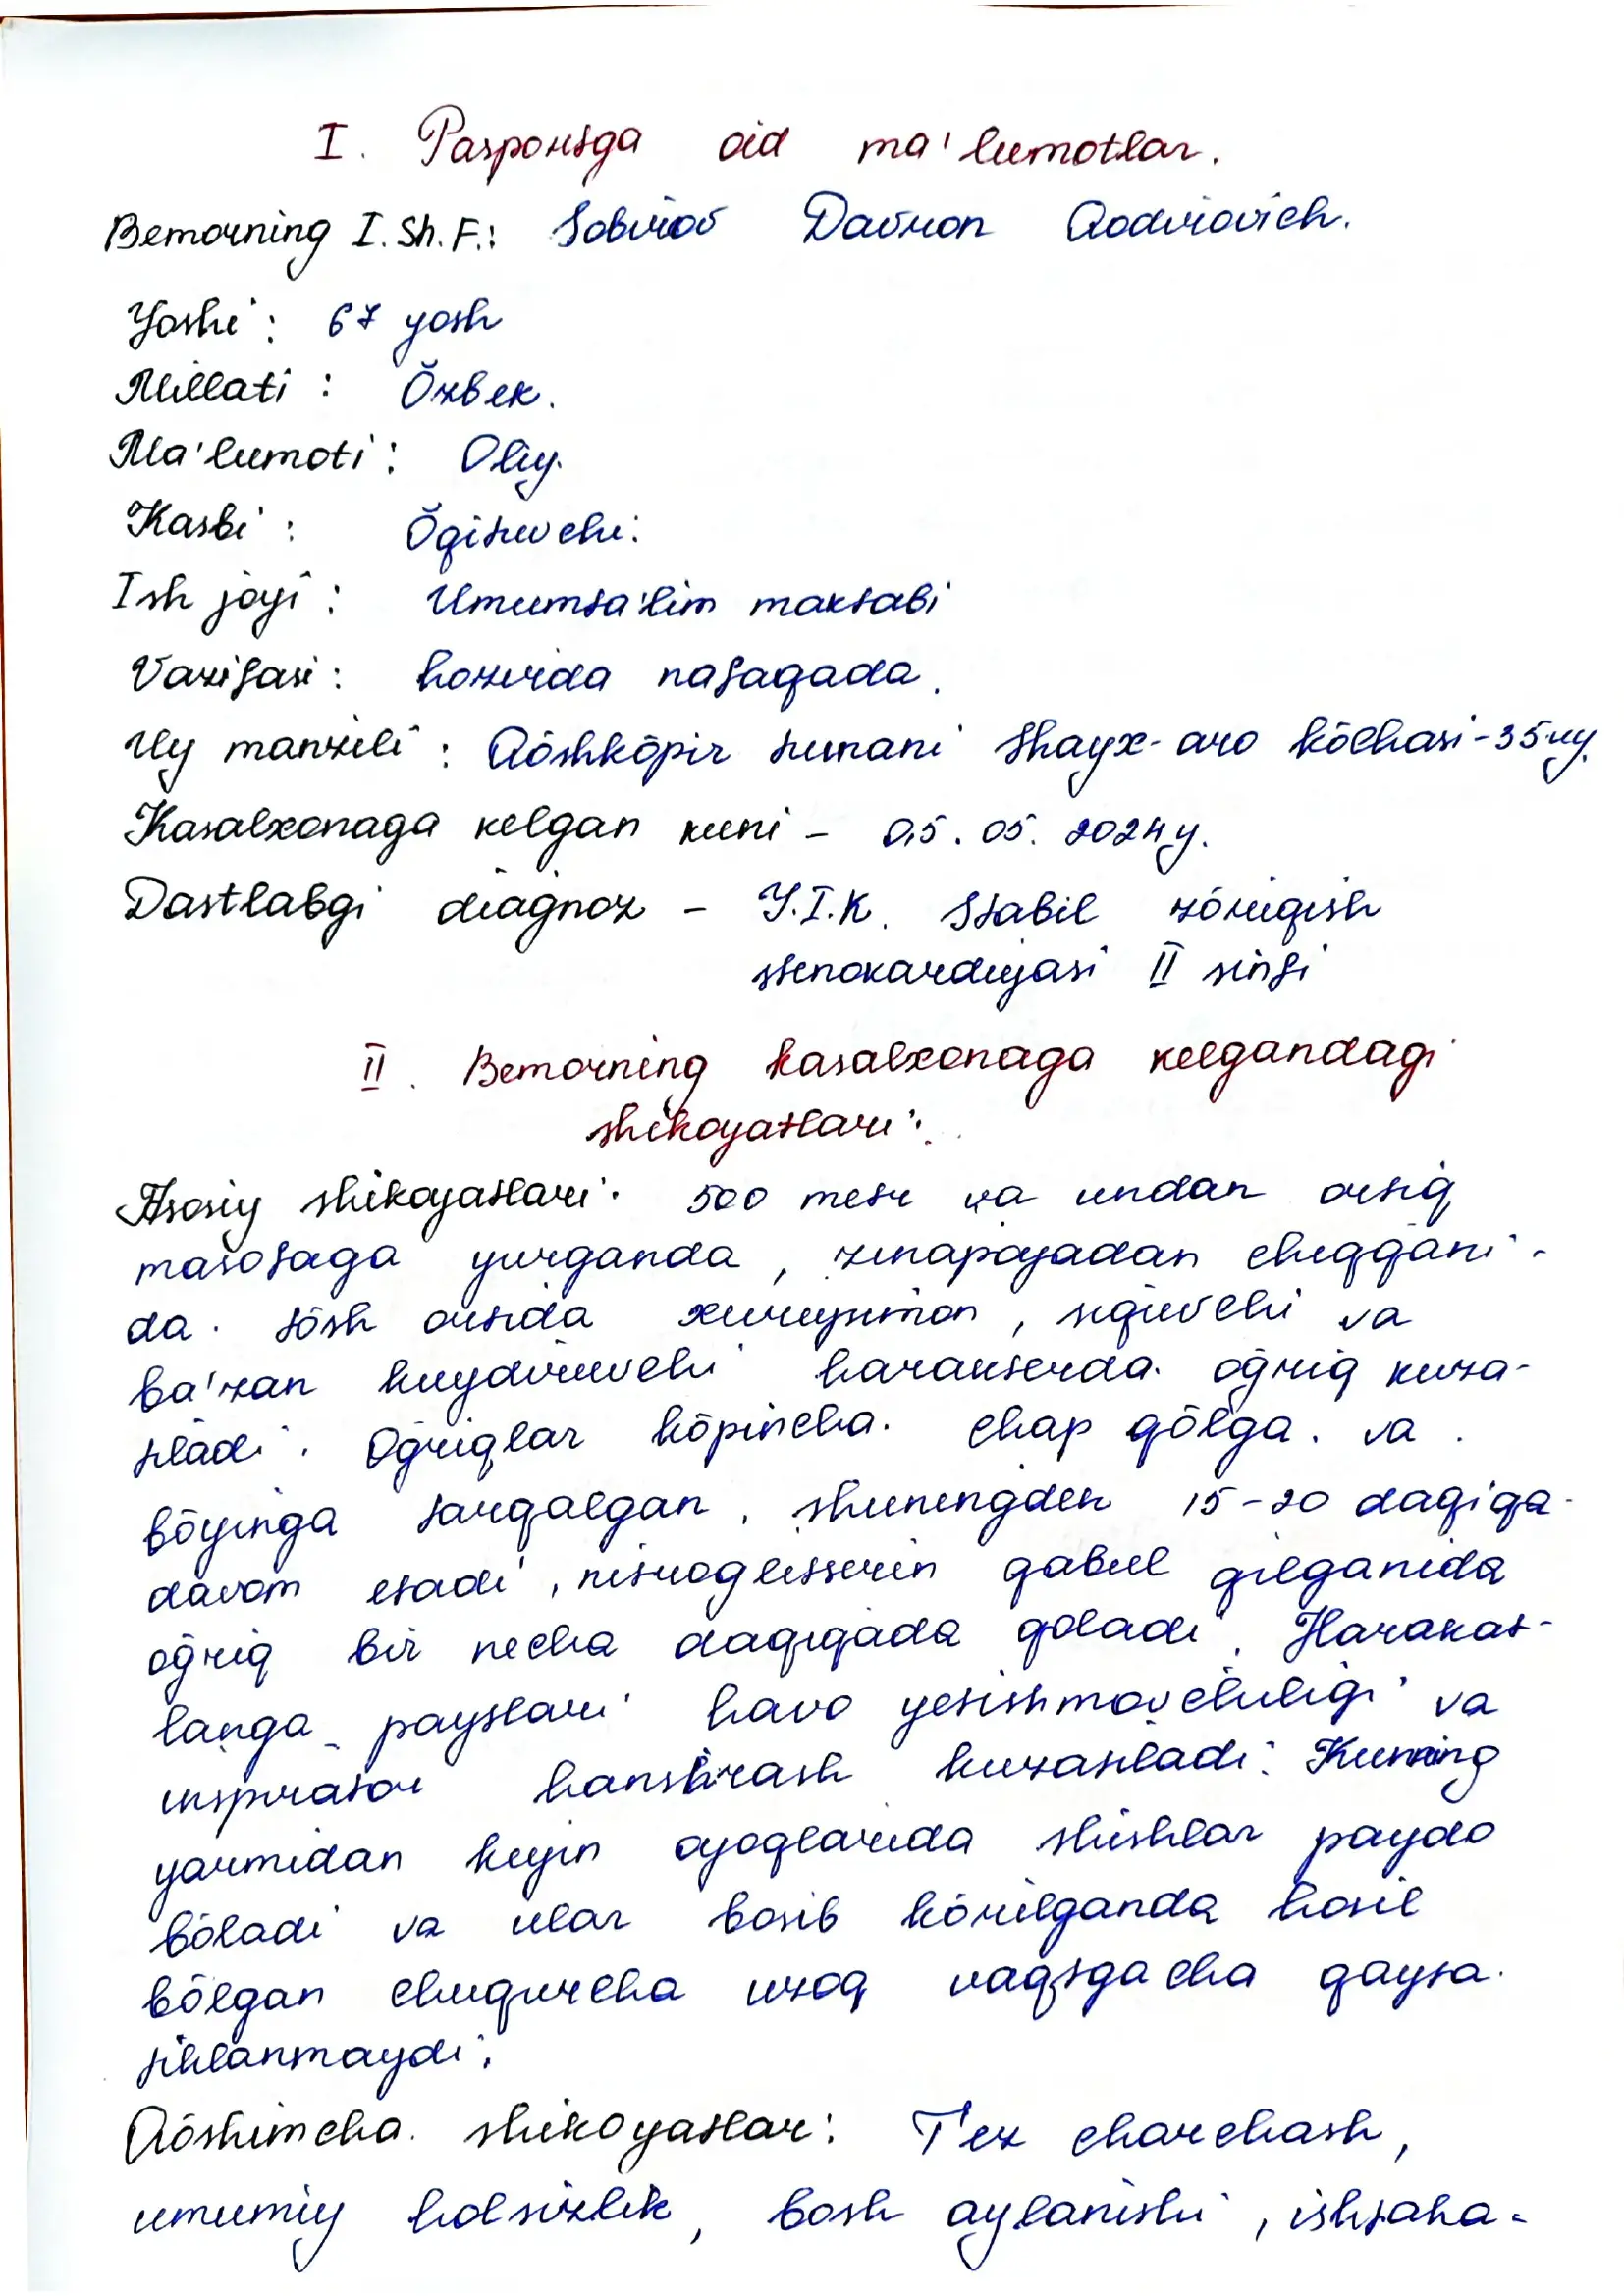 I. Pasportga oid ma'lumotlar.
Bemorning I.Sh.F.: Sobirov Davron Qodirovich.
Yoshi: 67 yosh
Millati: Õzbek.
Ma'lumoti: Oliy.
Kasbi: Õqituvchi.
Ish joyi: Umumta'lim maktabi
Vazifasi: hozirda nafaqada.
Uy manzili: Qõshkõpir tumani Shayx-aro kõchasi-35-uy.
Kasalxonaga kelgan kuni - 05.05.2024y.
Dastlabgi diagnoz - Y.I.K. Stabil zõriqish
stenokardiyasi II sinfi
II. Bemorning kasalxonaga kelgandagi
shikoyatlari:
Asosiy shikoyatlari: 500 metr va undan ortiq
masofaga yurganda, zinapoyadan chiqqani-
da tõsh ortida xurujsimon, siquvchi va
ba'zan kuydiruvchi harakterda õgriq kuza-
tiladi. Õgriqlar kõpincha chap qõlga va
bõyinga tarqalgan, shuningdek 15-20 daqiqa
davom etadi, nitroglitserin qabul qilganida
õgriq bir necha daqiqada qoladi. Harakat-
langa paytlari havo yetishmovchiligi va
inspirator hansirash kuzatiladi. Kunning
yarmidan keyin oyoqlarida shishlar paydo
bõladi va ular bosib kõrilganda hosil
bõlgan chuqurcha uzoq vaqtgacha qayta
tiklanmaydi.
Qõshimcha shikoyatlar: Tez charchash,
umumiy holsizlik, bosh aylanishi, ishtaha-